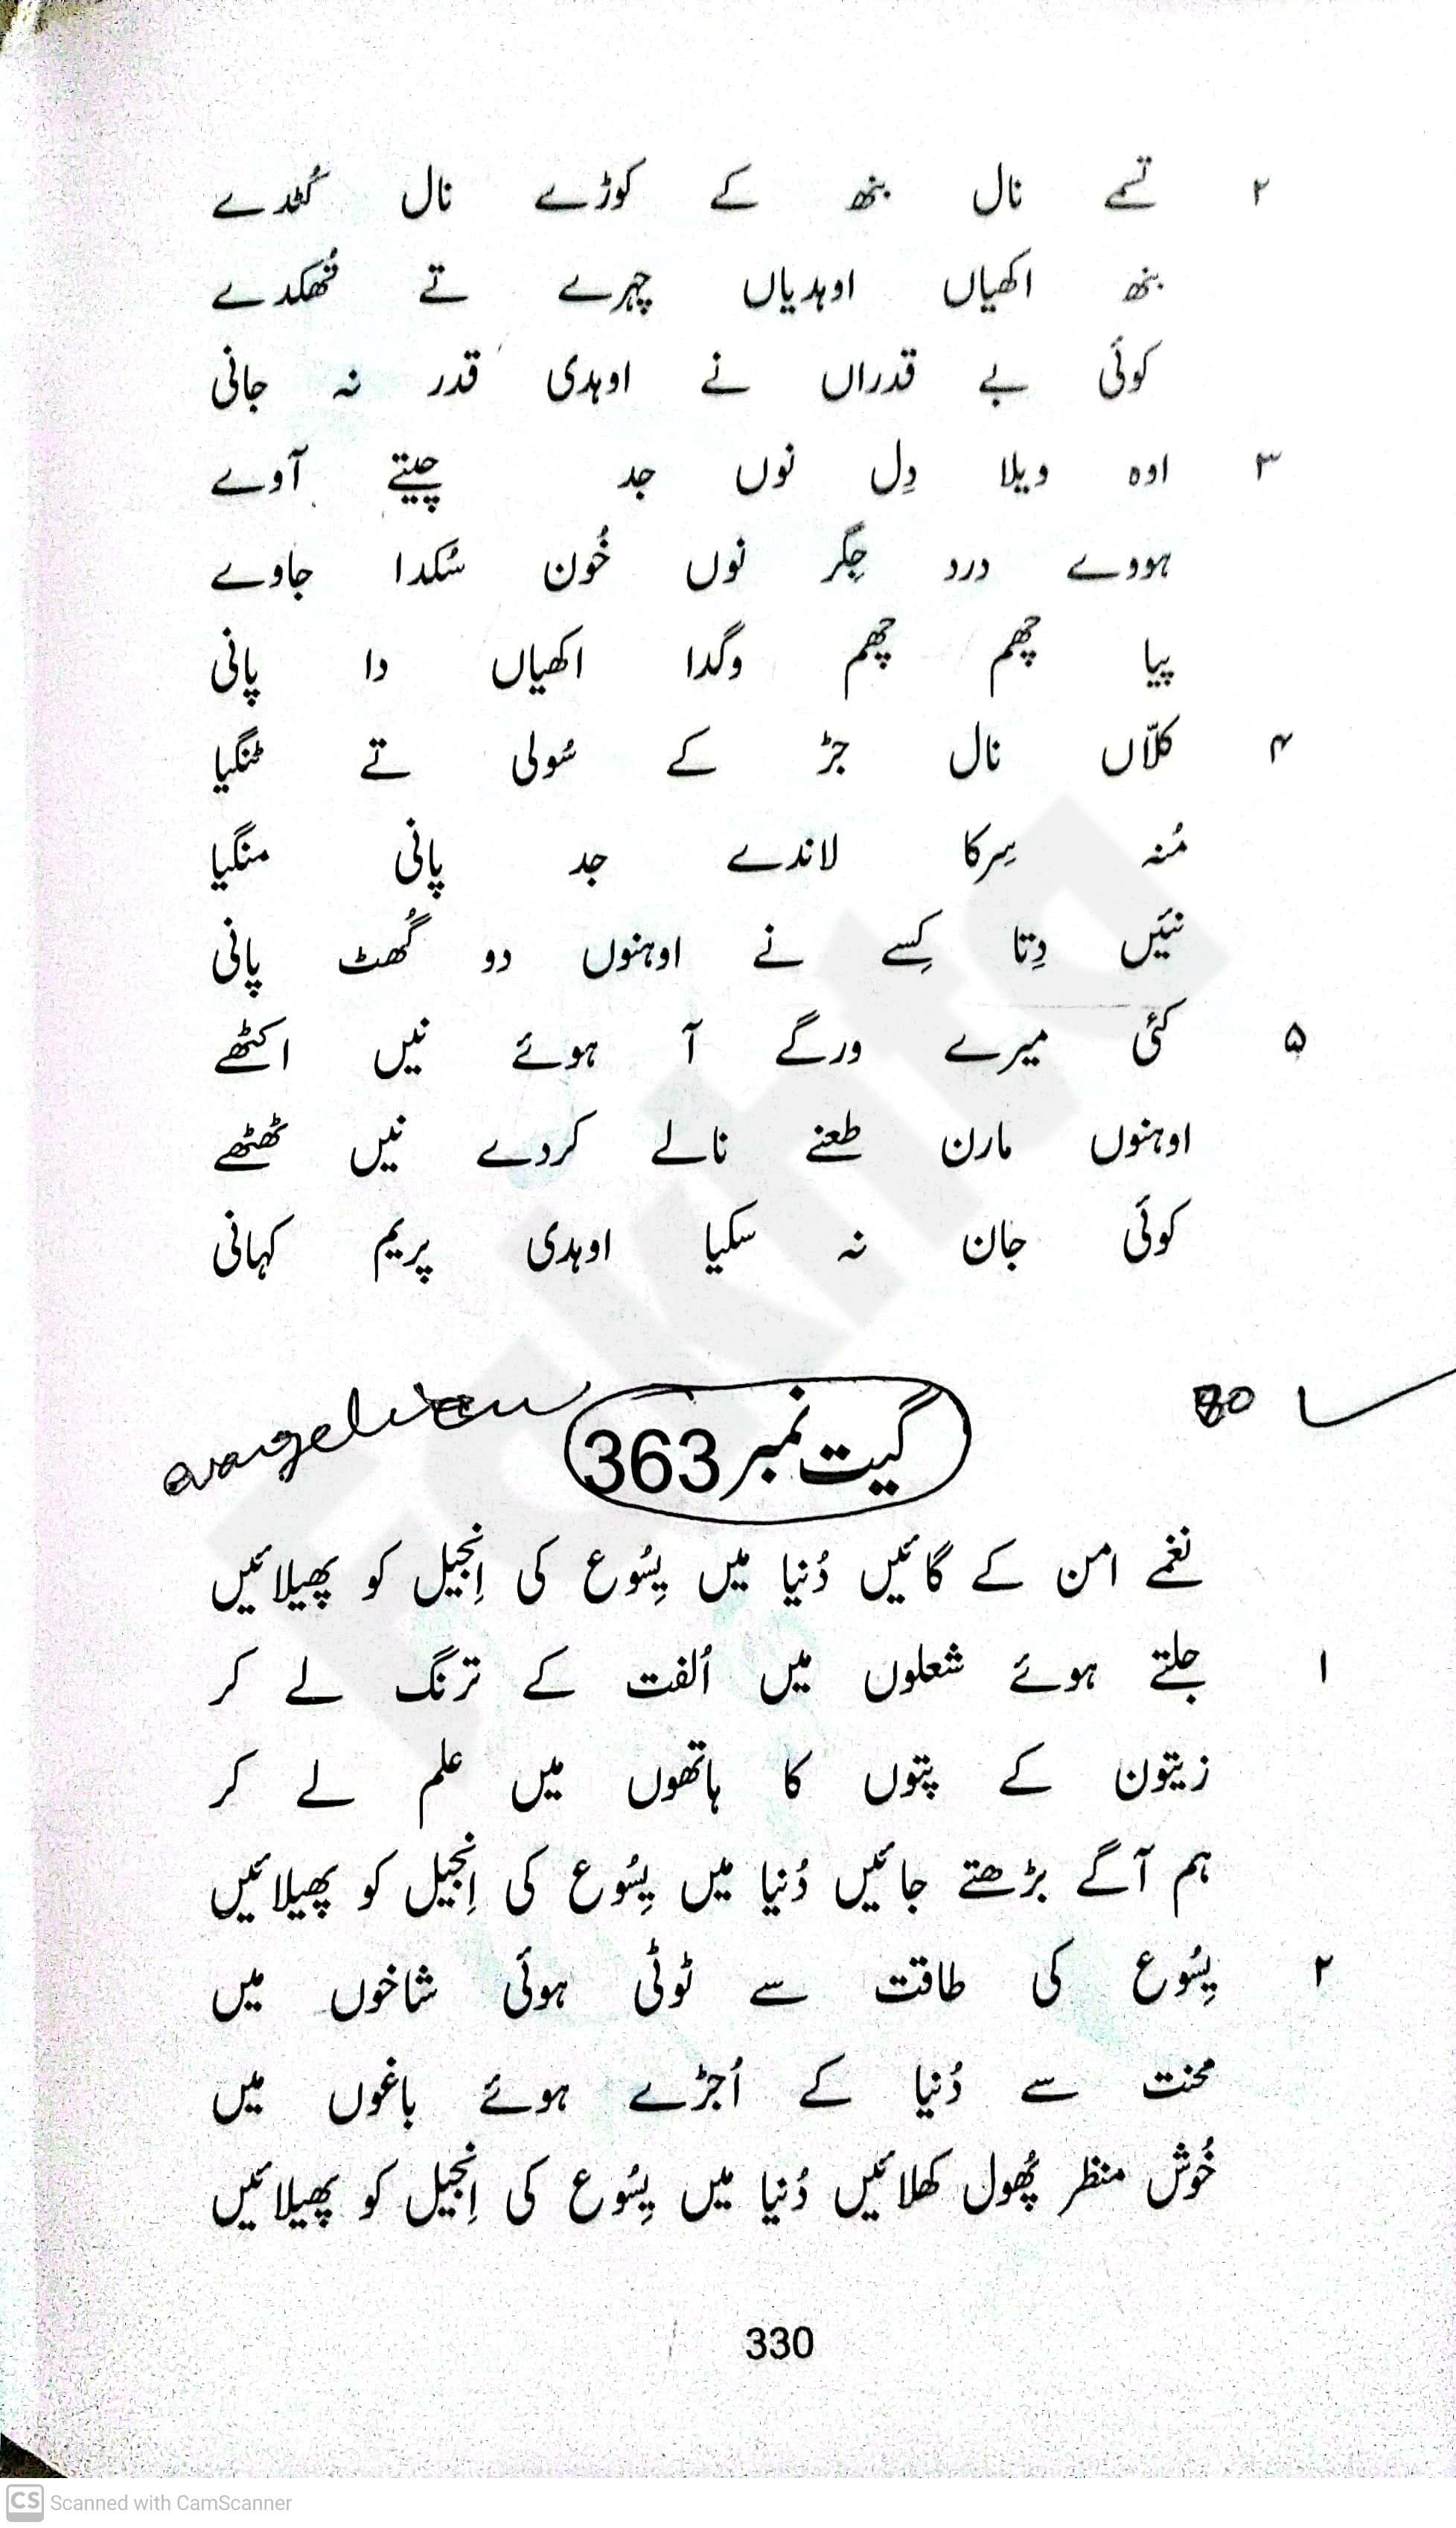 ۲ تسمے نال بنھ کے کوڑے نال کُٹدے
بنھ اکھیاں اوہدیاں چہرے تے تُھکدے
کوئی بے قدراں نے اوہدی قدر نہ جانی
۳ اوہ ویلا دِل نوں جد چیتے آوے
ہووے درد جِگر نوں خُون سُکدا جاوے
پیا چھم چھم وگدا اکھیاں دا پانی
۴ کلّاں نال جڑ کے سُولی تے ٹنگیا
مُنہ سِرکا لاندے جد پانی منگیا
نئیں دِتا کِسے نے اوہنوں دو گُھٹ پانی
۵ کئی میرے ورگے آ ہوئے نیں اکٹھے
اوہنوں مارن طعنے نالے کردے نیں ٹھٹھے
کوئی جان نہ سکیا اوہدی پریم کہانی
80
گیت نمبر 363
نغمے امن کے گائیں دُنیا میں یِسُوع کی اِنجیل کو پھیلائیں
۱ جلتے ہوئے شعلوں میں اُلفت کے ترنگ لے کر
زیتون کے پتوں کا ہاتھوں میں علم لے کر
ہم آگے بڑھتے جائیں دُنیا میں یِسُوع کی اِنجیل کو پھیلائیں
۲ یِسُوع کی طاقت سے ٹوٹی ہوئی شاخوں میں
محنت سے دُنیا کے اُجڑے ہوئے باغوں میں
خُوش منظر پُھول کھلائیں دُنیا میں یِسُوع کی اِنجیل کو پھیلائیں
330
CS Scanned with CamScanner